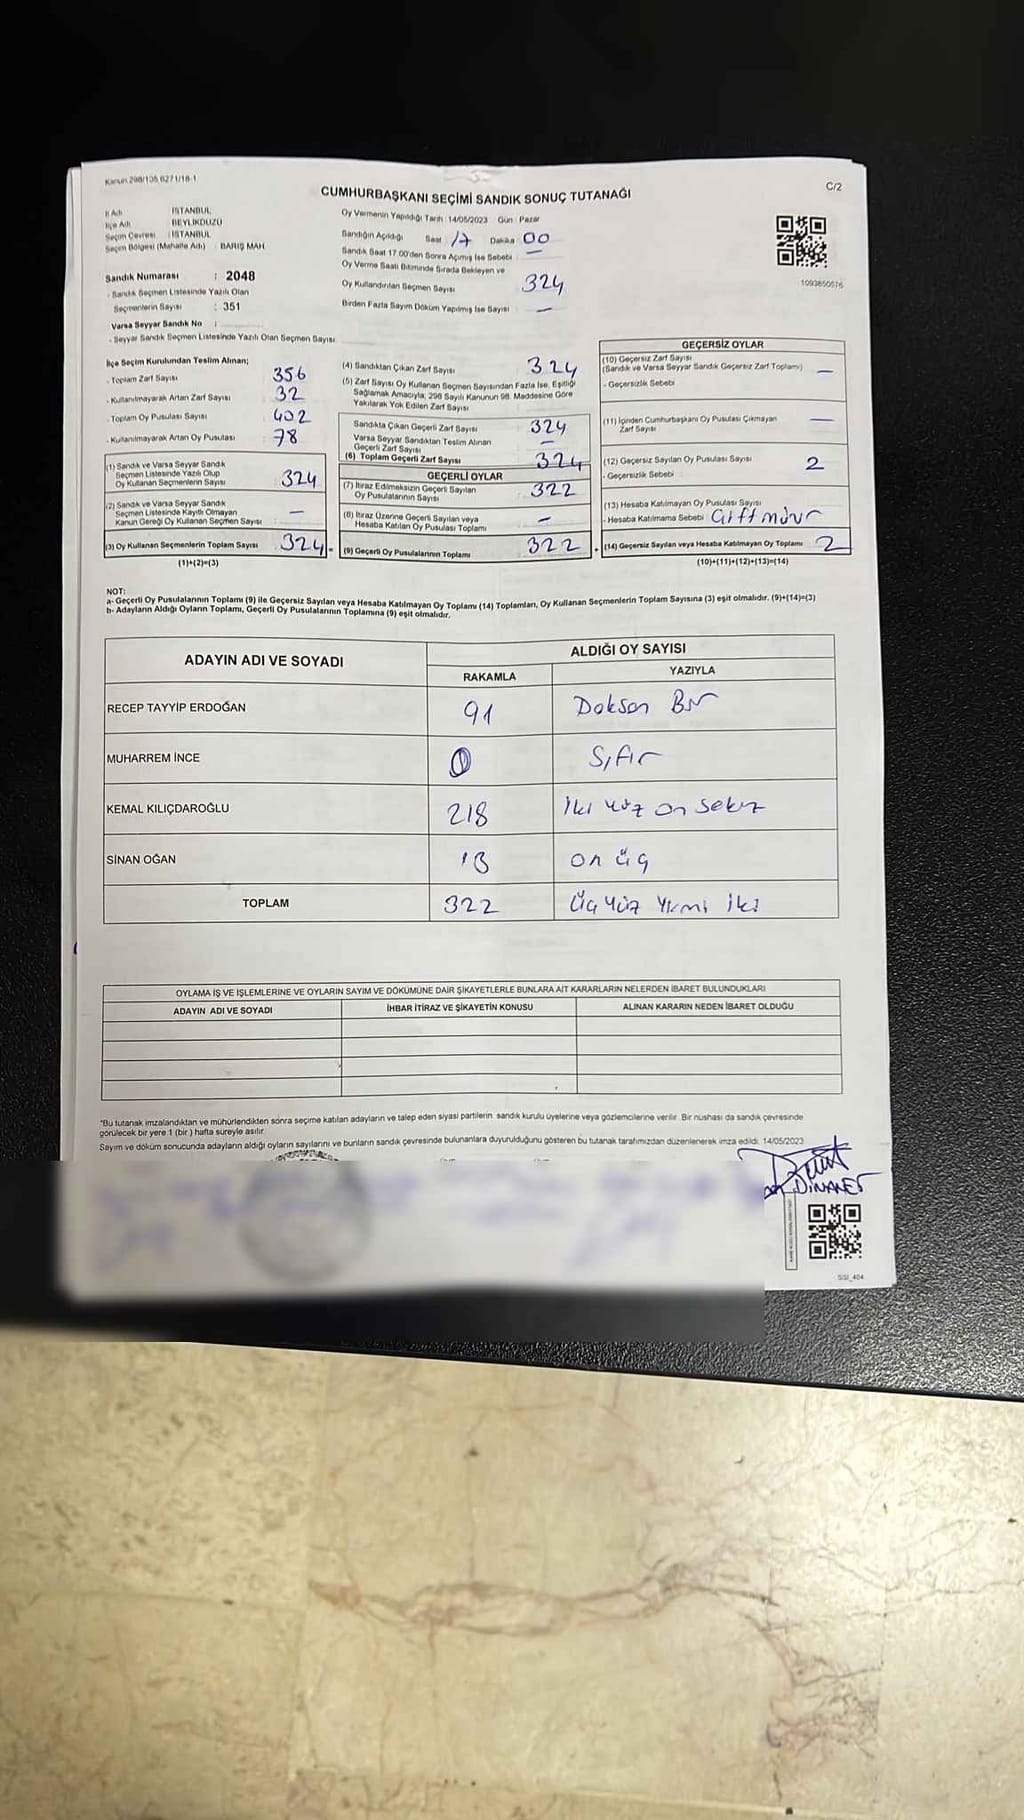 Kanun 298/105 6271/18-1
C/2
CUMHURBAŞKANI SEÇİMİ SANDIK SONUÇ TUTANAĞI
İl Adı İSTANBUL
İlçe Adı BEYLİKDÜZÜ
Seçim Çevresi : İSTANBUL
Seçim Bölgesi (Mahalle Adı) : BARIŞ MAH
Sandık Numarası : 2048
- Sandık Seçmen Listesinde Yazılı Olan
Seçmenlerin Sayısı : 351
Varsa Seyyar Sandık No :
- Seyyar Sandık Seçmen Listesinde Yazılı Olan Seçmen Sayısı:
Oy Vermenin Yapıldığı Tarih : 14/05/2023 Gün : Pazar
Sandığın Açıldığı Saat 17 Dakika 00
Sandık Saat 17.00'den Sonra Açılmış İse Sebebi : —
Oy Verme Saati Bitiminde Sırada Bekleyen ve
Oy Kullandırılan Seçmen Sayısı 324
Birden Fazla Sayım Döküm Yapılmış İse Sayısı : —
1093850576
İlçe Seçim Kurulundan Teslim Alınan;
- Toplam Zarf Sayısı 356
- Kullanılmayarak Artan Zarf Sayısı 32
- Toplam Oy Pusulası Sayısı 402
- Kullanılmayarak Artan Oy Pusulası 78
(1) Sandık ve Varsa Seyyar Sandık
Seçmen Listesinde Yazılı Olup
Oy Kullanan Seçmenlerin Sayısı 324
(2) Sandık ve Varsa Seyyar Sandık
Seçmen Listesinde Kayıtlı Olmayan
Kanun Gereği Oy Kullanan Seçmen Sayısı —
(3) Oy Kullanan Seçmenlerin Toplam Sayısı 324 =
(1)+(2)=(3)
(4) Sandıktan Çıkan Zarf Sayısı 324
(5) Zarf Sayısı Oy Kullanan Seçmen Sayısından Fazla İse, Eşitliği
Sağlamak Amacıyla; 298 Sayılı Kanunun 98. Maddesine Göre
Yakılarak Yok Edilen Zarf Sayısı
Sandıkta Çıkan Geçerli Zarf Sayısı 324
Varsa Seyyar Sandıktan Teslim Alınan
Geçerli Zarf Sayısı —
(6) Toplam Geçerli Zarf Sayısı 324
GEÇERLİ OYLAR
(7) İtiraz Edilmeksizin Geçerli Sayılan
Oy Pusulalarının Sayısı 322
(8) İtiraz Üzerine Geçerli Sayılan veya
Hesaba Katılan Oy Pusulası Toplamı —
(9) Geçerli Oy Pusulalarının Toplamı 322 +
GEÇERSİZ OYLAR
(10) Geçersiz Zarf Sayısı
(Sandık ve Varsa Seyyar Sandık Geçersiz Zarf Toplamı) —
- Geçersizlik Sebebi
(11) İçinden Cumhurbaşkanı Oy Pusulası Çıkmayan
Zarf Sayısı —
(12) Geçersiz Sayılan Oy Pusulası Sayısı 2
- Geçersizlik Sebebi
(13) Hesaba Katılmayan Oy Pusulası Sayısı
- Hesaba Katılmama Sebebi Çift mühür
(14) Geçersiz Sayılan veya Hesaba Katılmayan Oy Toplamı 2
(10)+(11)+(12)+(13)=(14)
NOT:
a- Geçerli Oy Pusulalarının Toplamı (9) ile Geçersiz Sayılan veya Hesaba Katılmayan Oy Toplamı (14) Toplamları, Oy Kullanan Seçmenlerin Toplam Sayısına (3) eşit olmalıdır. (9)+(14)=(3)
b- Adayların Aldığı Oyların Toplamı, Geçerli Oy Pusulalarının Toplamına (9) eşit olmalıdır.
ADAYIN ADI VE SOYADI ALDIĞI OY SAYISI
RAKAMLA YAZIYLA
RECEP TAYYİP ERDOĞAN 91 Doksan Bir
MUHARREM İNCE 0 Sıfır
KEMAL KILIÇDAROĞLU 218 iki yüz on sekiz
SİNAN OĞAN 13 on üç
TOPLAM 322 üç yüz yirmi iki
OYLAMA İŞ VE İŞLEMLERİNE VE OYLARIN SAYIM VE DÖKÜMÜNE DAİR ŞİKAYETLERLE BUNLARA AİT KARARLARIN NELERDEN İBARET BULUNDUKLARI
ADAYIN ADI VE SOYADI İHBAR İTİRAZ VE ŞİKAYETİN KONUSU ALINAN KARARIN NEDEN İBARET OLDUĞU
*Bu tutanak imzalandıktan ve mühürlendikten sonra seçime katılan adayların ve talep eden siyasi partilerin sandık kurulu üyelerine veya gözlemcilerine verilir. Bir nüshası da sandık çevresinde
görülecek bir yere 1 (bir) hafta süreyle asılır.
Sayım ve döküm sonucunda adayların aldığı oyların sayılarını ve bunların sandık çevresinde bulunanlara duyurulduğunu gösteren bu tutanak tarafımızdan düzenlenerek imza edildi. 14/05/2023
SSI_404